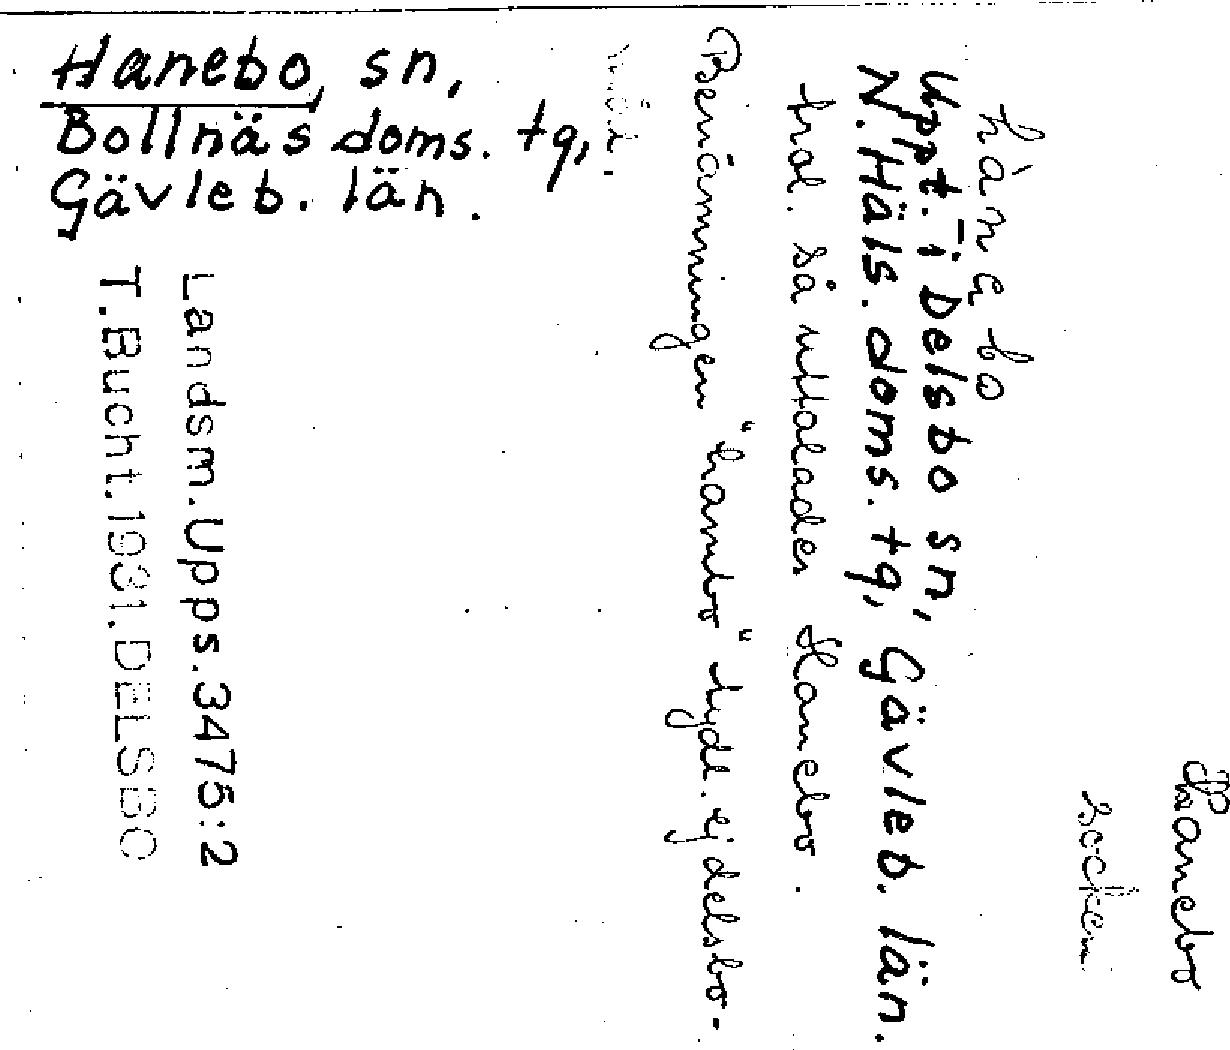 Hanebo, sn,
Bollnäs doms. tg,
Gävleb. län.
Hanebo
socken
hànebo
Uppt. i Delsbo sn,
N. Häls. doms. tg, Gävleb. län.
trol. så uttalades Hanebo.
Benämningen "hanebo" tydl. ej delsbo-
mål.
Landsm. Upps. 3475:2
T. Bucht. 1931. DELSBO